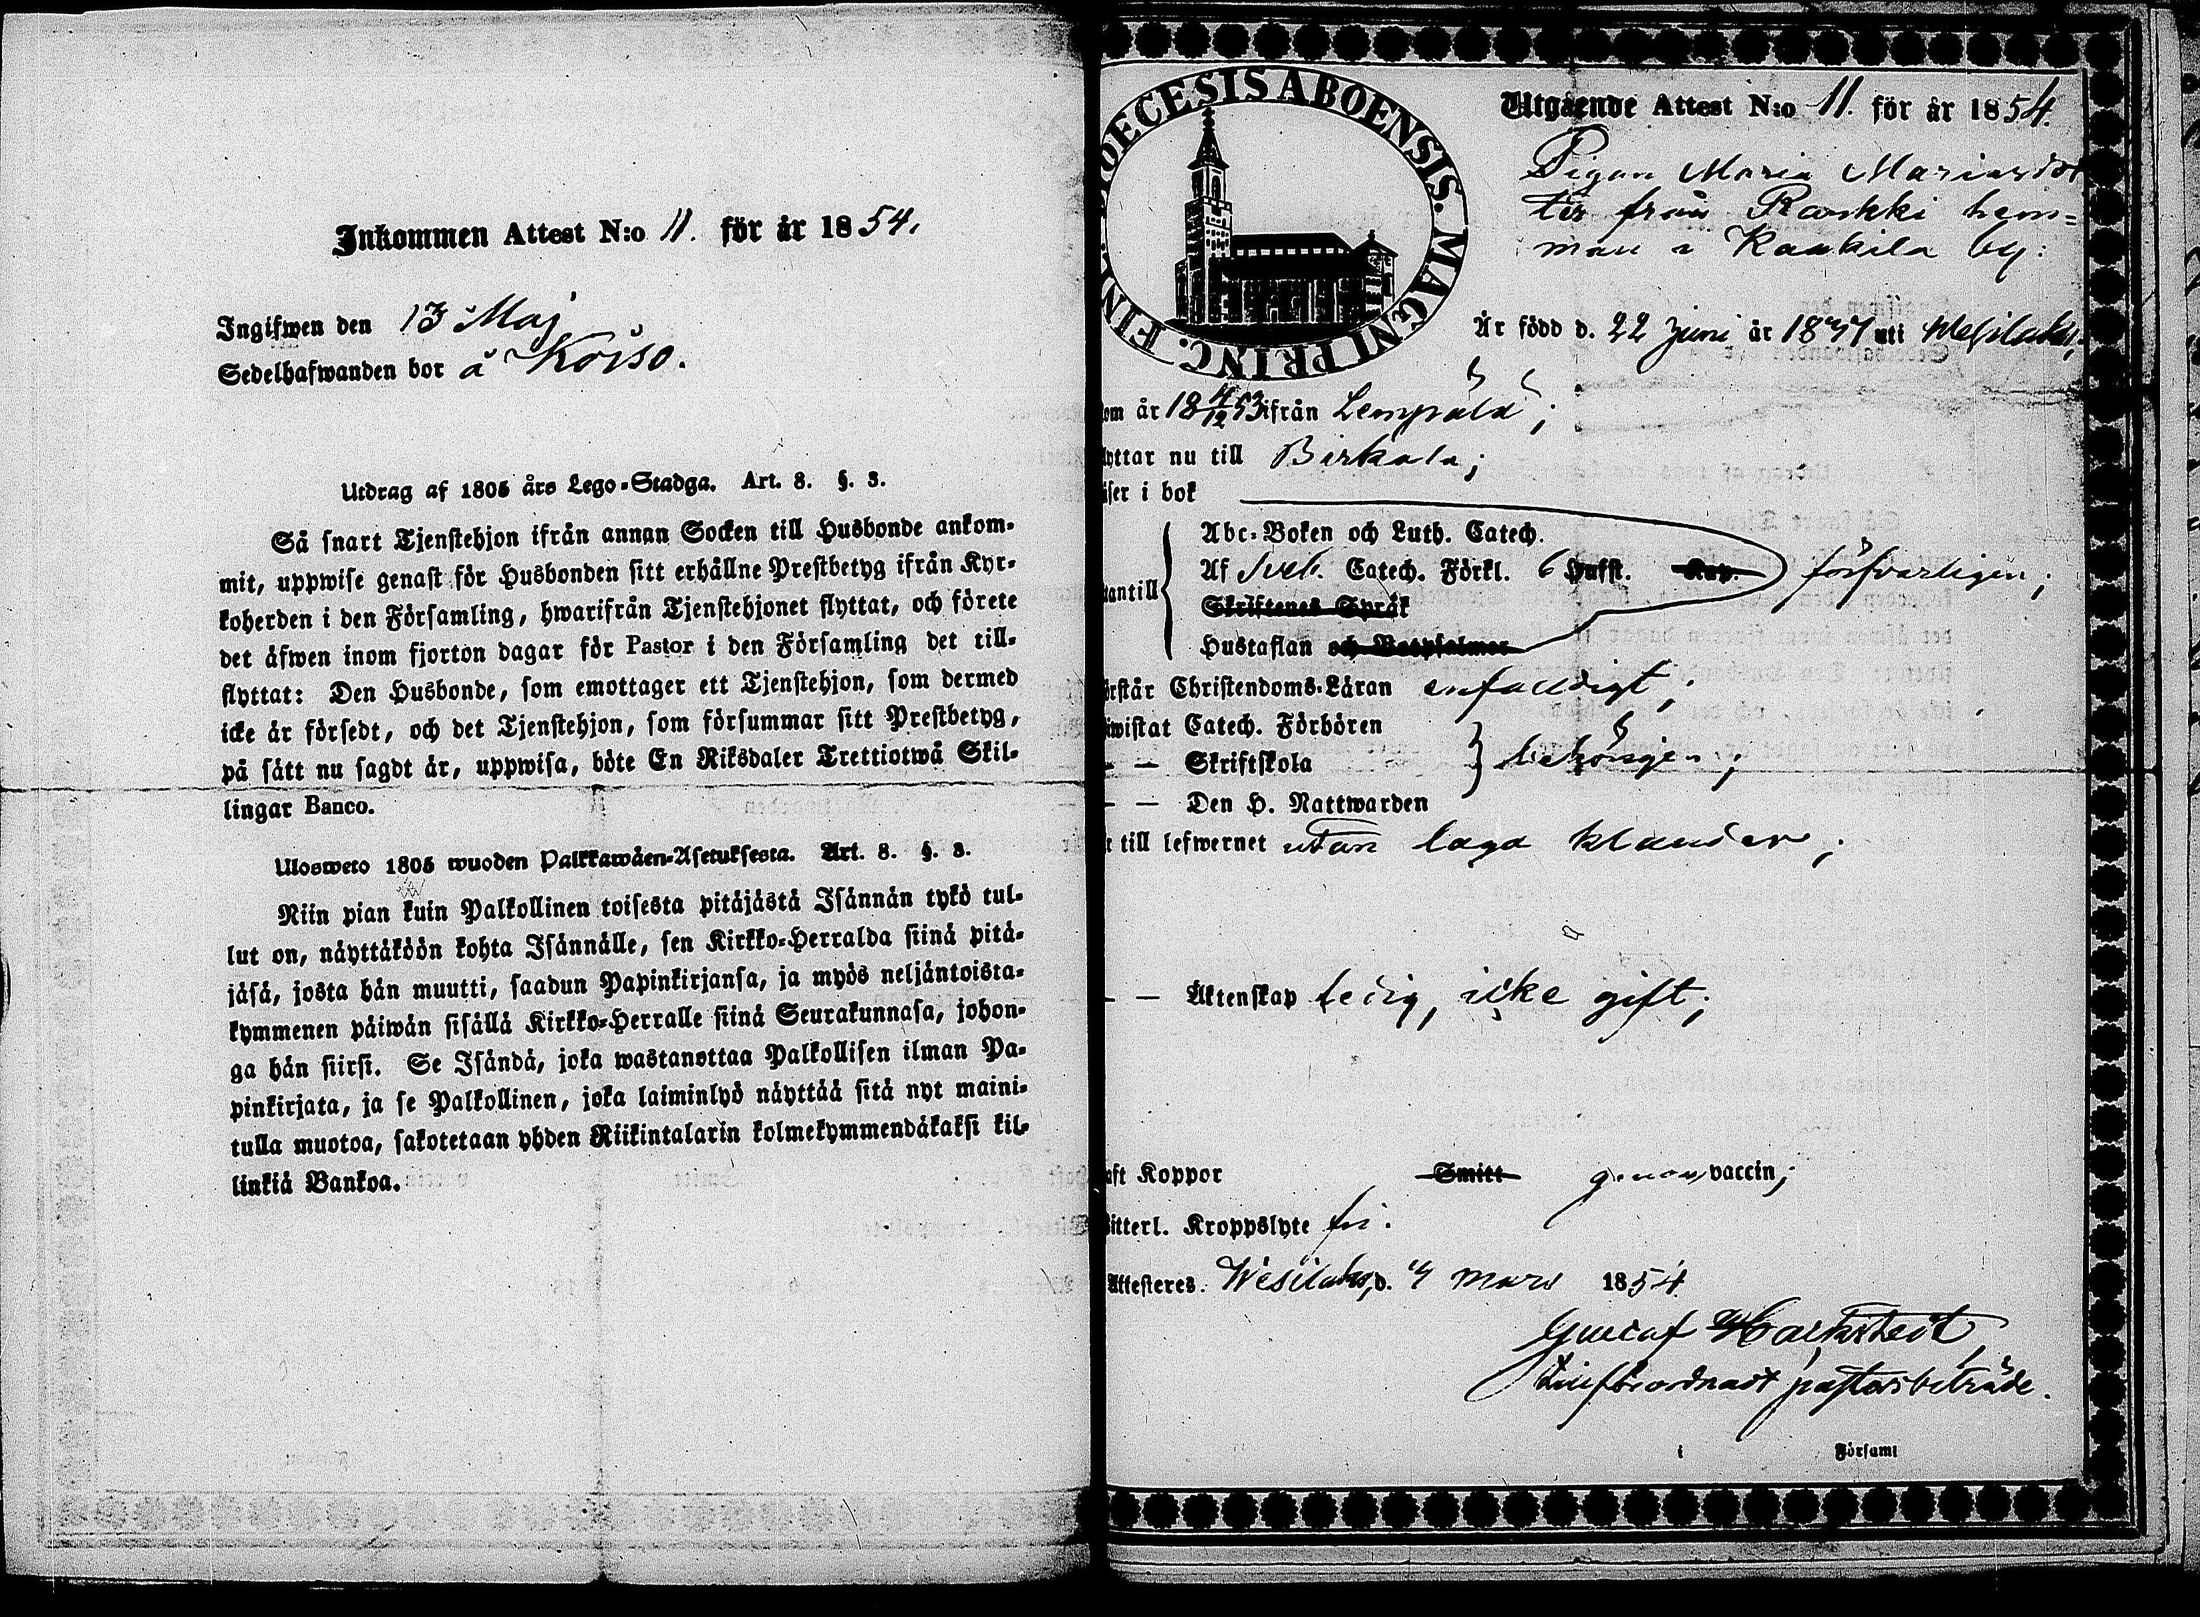 Inkommen Attest N:o 11. för år 1854.
Ingifwen den 13 Maj
Sedelhafwanden bor å Koiso.
Utdrag af 1805 års Lego-Stadga. Art. 8. §. 3.
Så snart Tjenstehjon ifrån annan Socken till Husbonde ankom-
mit, uppwise genast för Husbonden sitt erhållne Prestbetyg ifrån Kyr-
koherden i den Församling, hwarifrån Tjenstehjonet flyttat, och förete
det äfwen inom fjorton dagar för Pastor i den Församling det till-
flyttat: Den Husbonde, som emottager ett Tjenstehjon, som dermed
icke är försedt, och det Tjenstehjon, som försummar sitt Prestbetyg,
på sätt nu sagdt är, uppwisa, böte En Riksdaler Trettiotwå Skil-
lingar Banco.
Ulosweto 1805 wuoden Palkkawäen-Asetuksesta. Art. 8. §. 3.
Niin pian kuin Palkollinen toisesta pitäjästä Isännän tykö tul-
lut on, näyttäköön kohta Isännälle, sen Kirkko-Herralda siinä pitä-
jäsä, josta hän muutti, saadun Papinkirjansa, ja myös neljäntoista-
kymmenen päiwän sisällä Kirkko-Herralle siinä Seurakunnasa, johon-
ga hän siirsi. Se Isändä, joka wastanottaa Palkollisen ilman Pa-
pinkirjata, ja se Palkollinen, joka laiminlyö näyttää sitä nyt maini-
tulla muotoa, sakotetaan yhden Riikintalarin kolmekymmendäkaksi kil-
linkiä Bankoa.
DIOECESIS ABOENSIS. MAGNI PRINC. FINL.
Utgående Attest N:o 11. för år 1854.
Pigan Maria Mariasdot
ter från Raukki hem-
man i Kaukila by:
Är född d. 22 Juni år 18 uti Wesilaks,
om år 18 4/12 53 ifrån Lempälä;
lyttar nu till Birkala;
äser i bok
Abc-Boken och Luth. Catech.
Af Sveb. Catech. Förkl. 6 Hufst.
försvarligen;
tantill
Skriftenes Språk
Hustaflan och Botpsalmer
örstår Christendoms-Läran enfaldigt;
iwistat Catech. Förhören
— — Skriftskola
behörigen;
— — Den H. Nattwarden
r till lefwernet utan laga klander;
— — Äktenskap ledig, icke gift;
aft Koppor Smitt genom vaccin;
itterl. Kroppslyte fri.
Attesteres. Wesilaks, d. 4 mars 1854.
Gustaf
pastorsbiträde.
i Församl